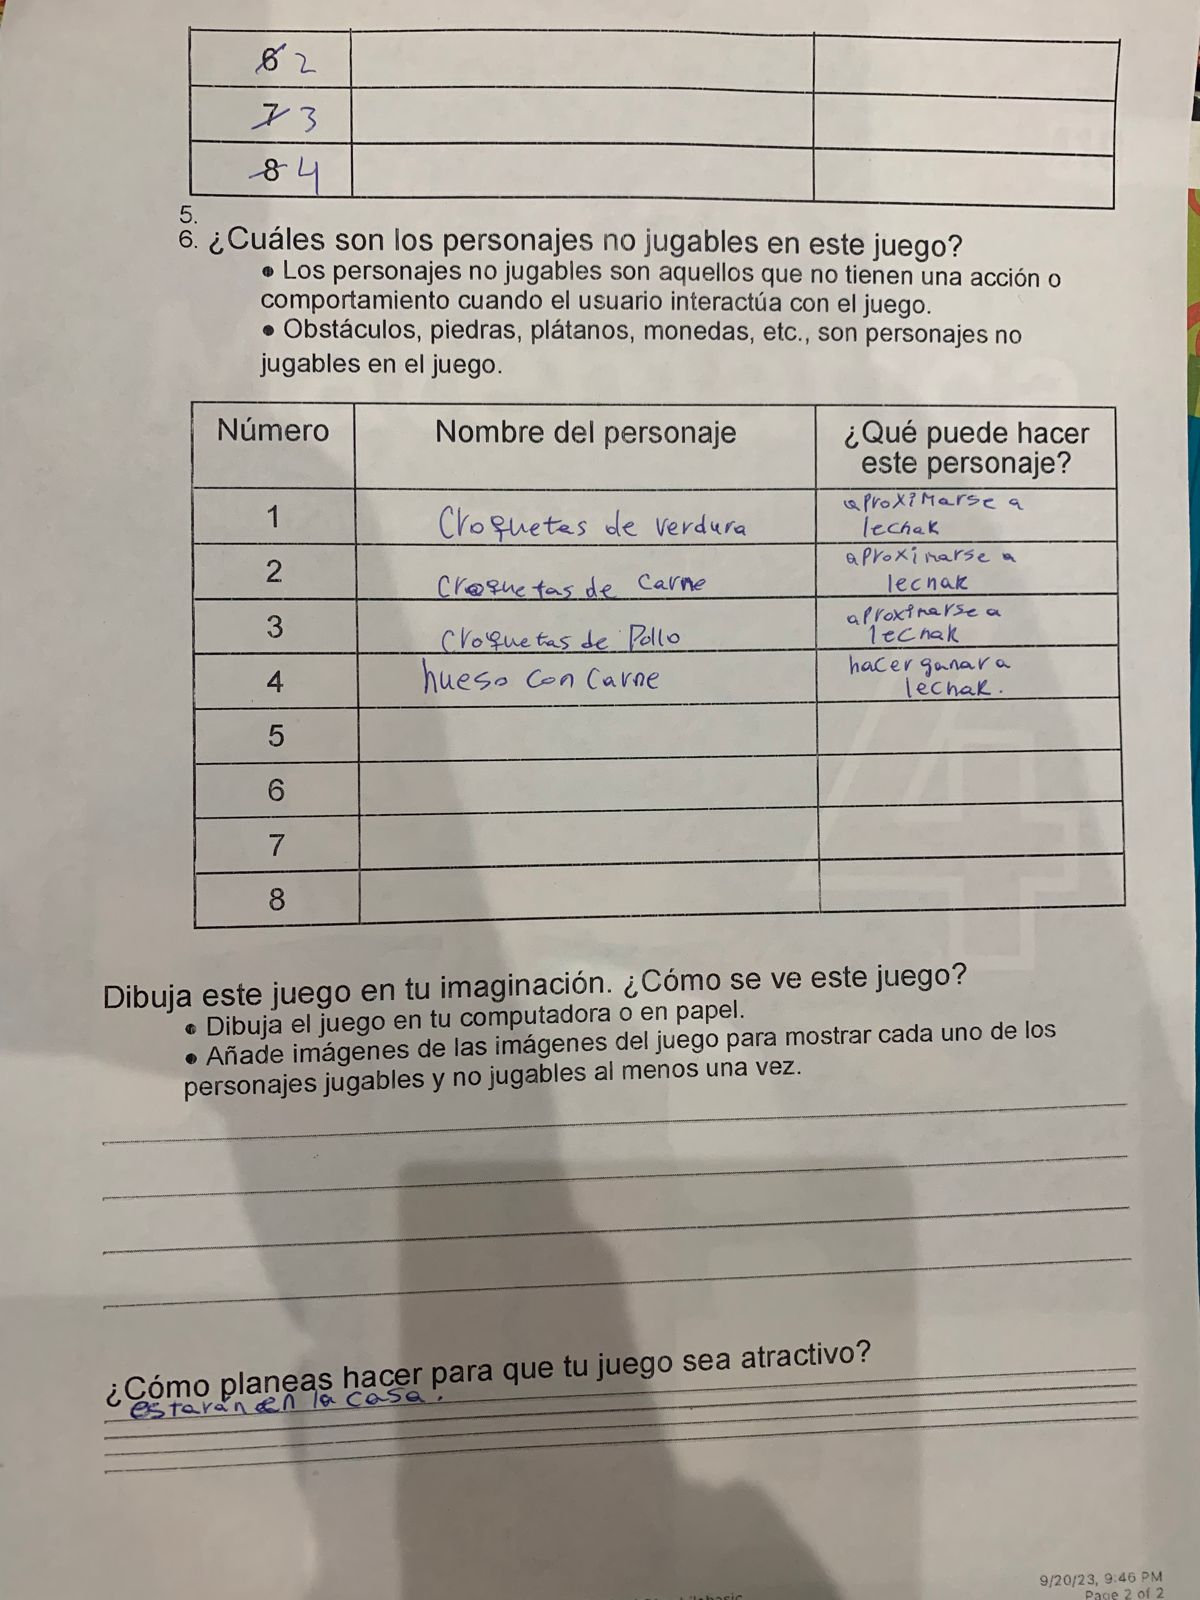 6 2
7 3
8 4
5.
6. ¿Cuáles son los personajes no jugables en este juego?
● Los personajes no jugables son aquellos que no tienen una acción o
comportamiento cuando el usuario interactúa con el juego.
● Obstáculos, piedras, plátanos, monedas, etc., son personajes no
jugables en el juego.
Número Nombre del personaje ¿Qué puede hacer
este personaje?
1 Croquetas de verdura aproximarse a
lechak
2 Croquetas de Carne aproximarse a
lechak
3 Croquetas de Pollo aproximarse a
lechak
4 hueso con Carne hacer ganar a
lechak.
5
6
7
8
Dibuja este juego en tu imaginación. ¿Cómo se ve este juego?
● Dibuja el juego en tu computadora o en papel.
● Añade imágenes de las imágenes del juego para mostrar cada uno de los
personajes jugables y no jugables al menos una vez.
¿Cómo planeas hacer para que tu juego sea atractivo?
estarán en la casa.
9/20/23, 9:46 PM
Page 2 of 2